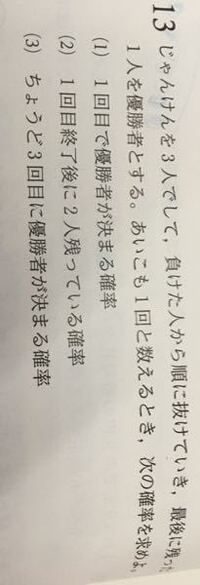 13 じゃんけんを3人でして，負けた人から順に抜けていき，最後に残った
1人を優勝者とする。あいこも1回と数えるとき，次の確率を求めよ。
(1) 1回目で優勝者が決まる確率
(2) 1回目終了後に2人残っている確率
(3) ちょうど3回目に優勝者が決まる確率